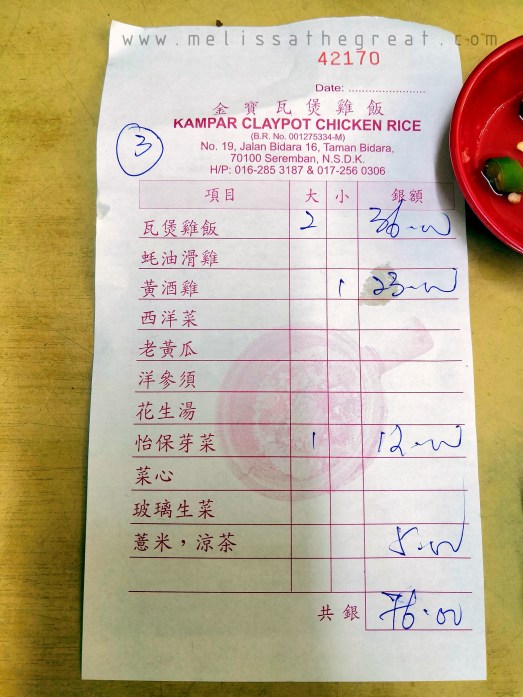 www.melissathegreat.com
42170
Date: ........................
金寶瓦煲雞飯
KAMPAR CLAYPOT CHICKEN RICE
(B.R. No. 001275334-M)
No. 19, Jalan Bidara 16, Taman Bidara,
70100 Seremban, N.S.D.K.
H/P: 016-285 3187 & 017-256 0306
3
項目 大 小 銀額
瓦煲雞飯 2 36.00
蚝油滑雞
黃酒雞 1 23.00
西洋菜
老黃瓜
洋參須
花生湯
怡保芽菜 1 12.00
菜心
玻璃生菜
薏米，涼茶 5.00
共銀 76.00